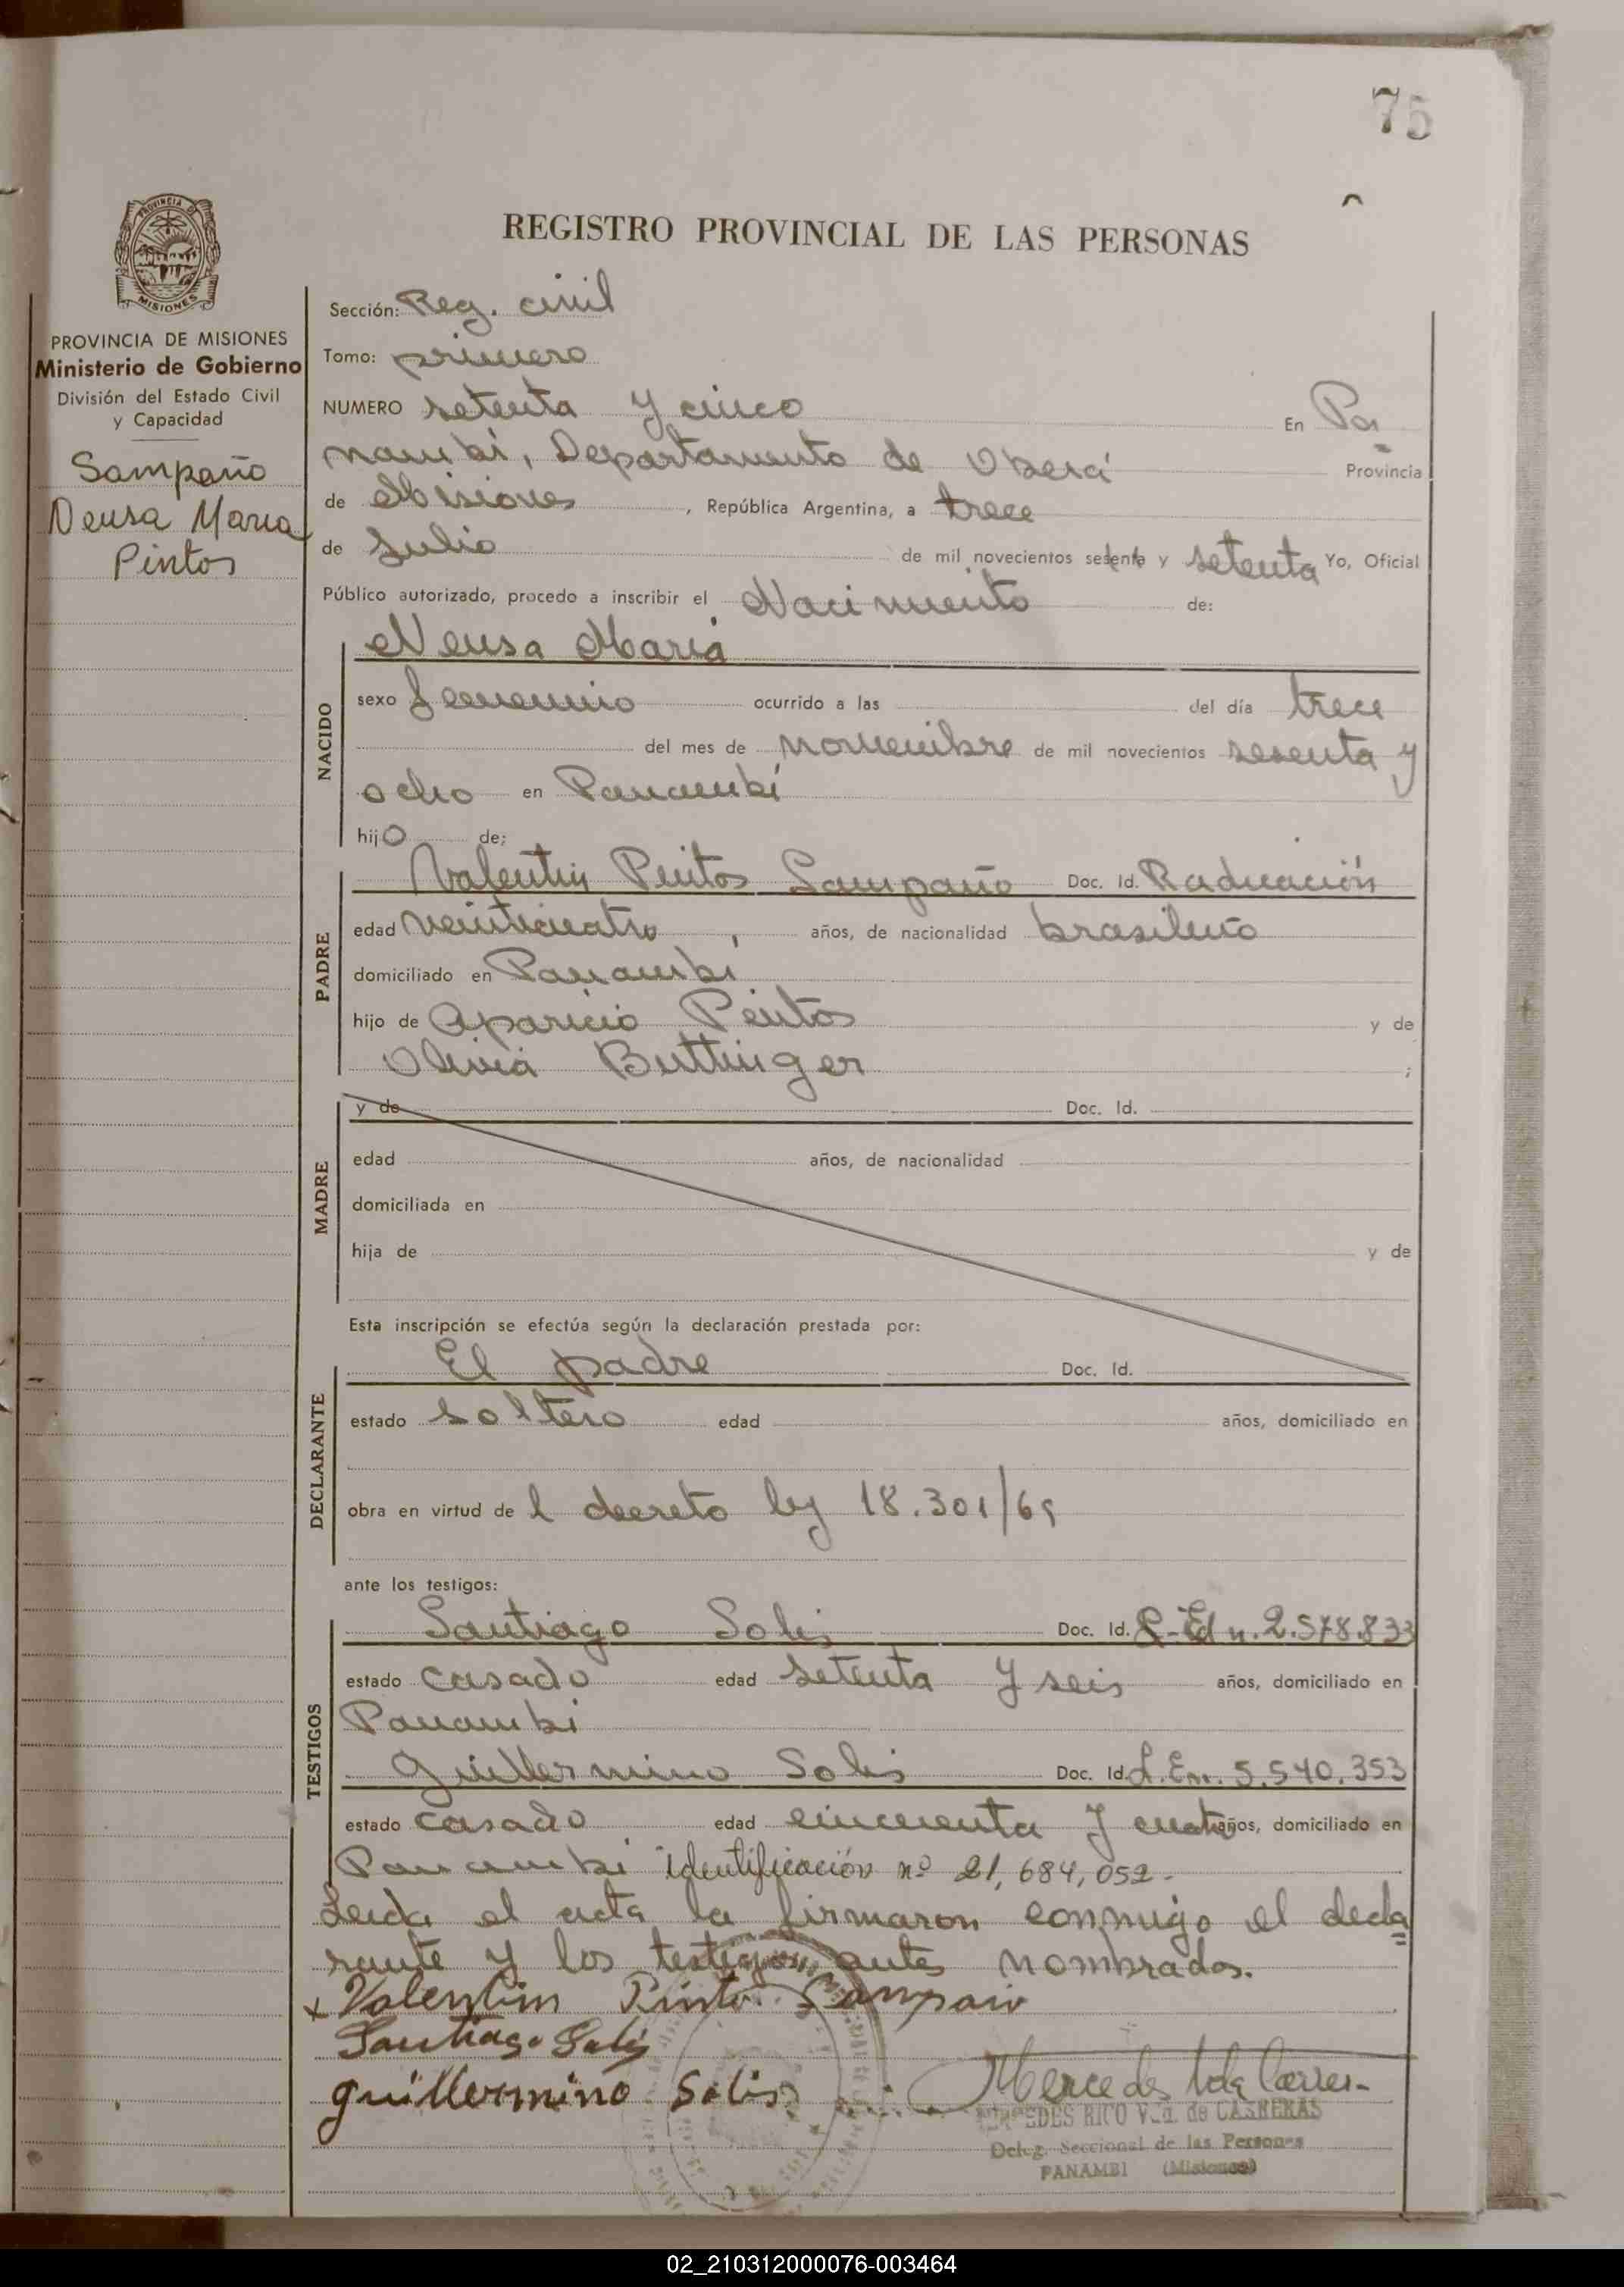 75
REGISTRO PROVINCIAL DE LAS PERSONAS
PROVINCIA DE
MISIONES
PROVINCIA DE MISIONES
Ministerio de Gobierno
División del Estado Civil
y Capacidad
Sampaño
Neusa Maria
Pintos
Sección: Reg. civil
Tomo: primero
NUMERO setenta y cinco En Pa
nambí, Departamento de Oberá Provincia
de Misiones, República Argentina, a trece
de Julio de mil novecientos sesenta y setenta Yo, Oficial
Público autorizado, procedo a inscribir el Nacimiento de:
NACIDO
Neusa María
sexo femenino ocurrido a las del día trece
del mes de noviembre de mil novecientos sesenta y
ocho en Panambí
hijo de;
PADRE
Valentin Pintos Sampaño Doc. Id. Radicación
edad veinticuatro, años, de nacionalidad brasileño
domiciliado en Panambí
hijo de Aparicio Pintos y de
Olivia Buttinger ;
MADRE
y de Doc. Id.
edad años, de nacionalidad
domiciliada en
hija de y de
Esta inscripción se efectúa según la declaración prestada por:
DECLARANTE
El padre Doc. Id.
estado soltero edad años, domiciliado en
obra en virtud de l decreto ley 18.301/69
ante los testigos:
TESTIGOS
Santiago Solis Doc. Id. n. 2.578.833
estado casado edad setenta y seis años, domiciliado en
Panambí
Guillermino Solis Doc. Id. L.En. 5.540.353
estado casado edad cincuenta y cuatro años, domiciliado en
Panambí identificación nº 21,684,052.-
Leida el acta la firmaron conmigo el decla
rante y los testigos antes nombrados.
x Valentim Pinto Sampaio
Santiago Solis
guillermino Solis
Mercedes
MERCEDES RICO Vda. de CARRERAS
Deleg. Seccional de las Personas
PANAMBI (Misiones)
02_210312000076-003464